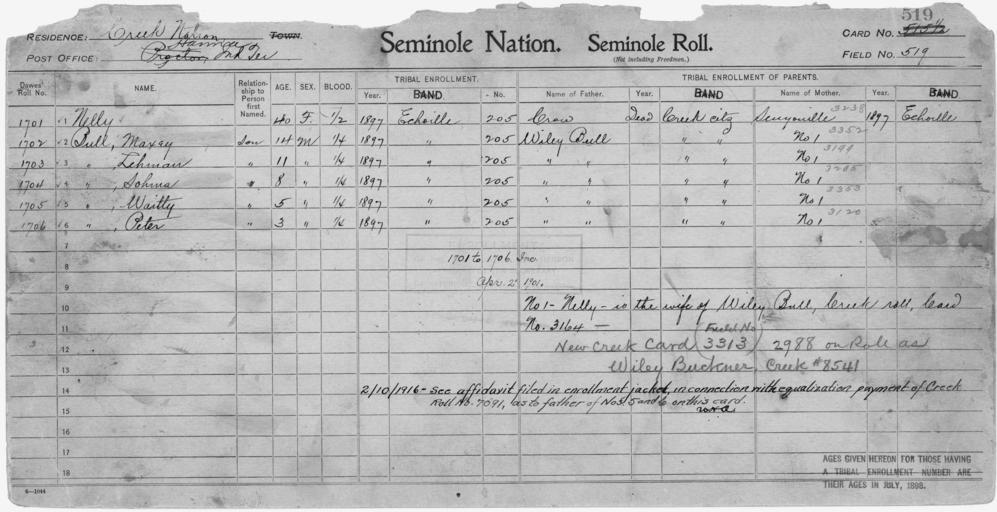 519
RESIDENCE: Creek Nation TOWN. Seminole Nation. Seminole Roll. CARD NO.
Hanna
POST OFFICE: Proctor, Ind Ter (Not including Freedmen.) FIELD NO. 519
Dawes' Roll No. NAME. Relationship to Person first Named. AGE. SEX. BLOOD. TRIBAL ENROLLMENT. TRIBAL ENROLLMENT OF PARENTS.
Year. BAND No. Name of Father. Year. BAND Name of Mother. Year. BAND
1701 1 Nelly 40 F. 1/2 1897 Echoille 205 Crow Dead Creek citz 3238 1897 Echoille
1702 2 Bull, Maxey Son 14 M 1/4 1897 " 205 Wiley Bull " " No 1 3352
1703 3 " , Lehman " 11 " 1/4 1897 " 205 " " " " No 1
1704 4 " , Sohma " 8 " 1/4 1897 " 205 " " " " No 1
1705 5 " , Waitty " 5 " 1/4 1897 " 205 " " " " No 1 3353
1706 6 " , Peter " 3 " 1/4 1897 " 205 " " " " No 1 3120
7
1701 to 1706 Inc.
8
Apr. 2, 1901.
9
10 No 1 - Nelly - is the wife of Wiley Bull, Creek roll, Card
11 No. 3164 —
(Field No
12 New Creek Card 3313) 2988 on Role as
13 Wiley Buckner, Creek #8541
14 2/10/1916 - See affidavit filed in enrollment jacket, in connection with equalization payment of Creek
15 Roll No. 7091, as to father of Nos. 5 and 6 on this card.
16
17
18
AGES GIVEN HEREON FOR THOSE HAVING
A TRIBAL ENROLLMENT NUMBER ARE
THEIR AGES IN JULY, 1898.
6—1044